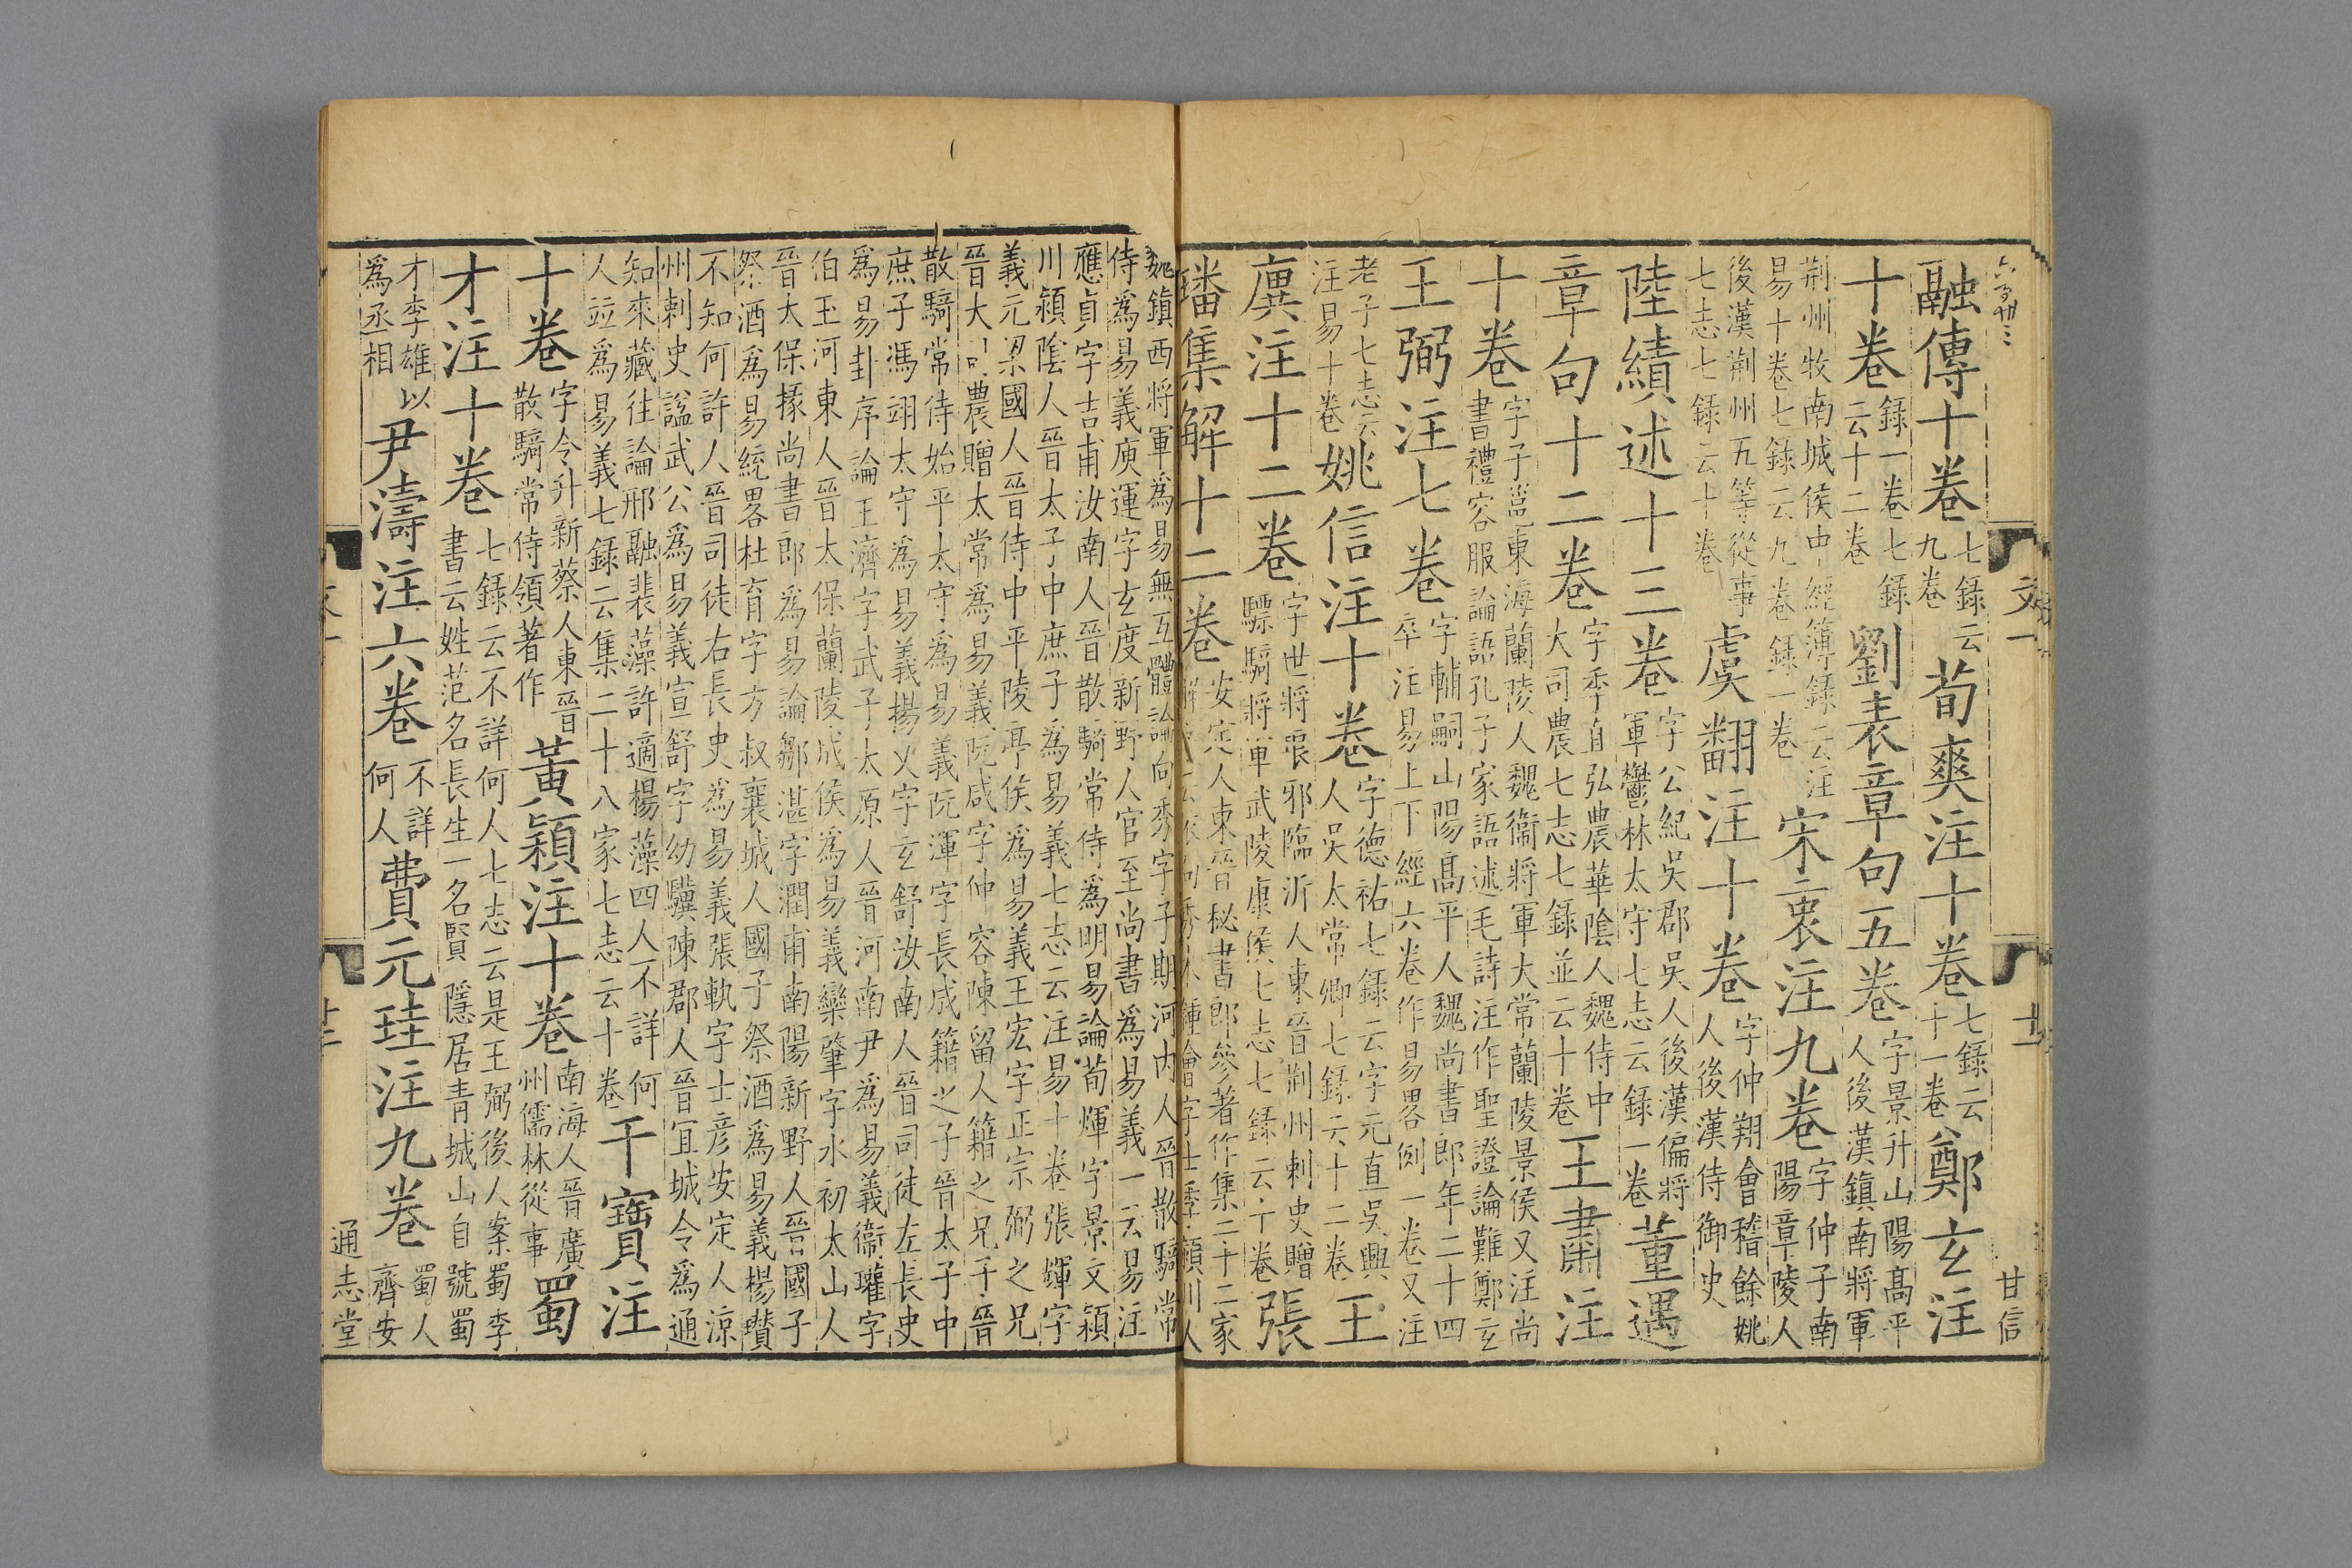 融傳十卷七錄云九卷荀爽注十卷七錄云十一卷鄭玄注
十卷錄一卷七錄云十二卷劉表章句五卷字景升山陽高平人後漢鎮南將軍
荆州牧南城侯中經簿錄云注易十卷七錄云九卷錄一卷宋衷注九卷字仲子南陽章陵人
後漢荆州五等從事七志七錄云十卷虞翻注十卷字仲翔會稽餘姚人後漢侍御史
陸績述十三卷字公紀吳郡吳人後漢偏將軍鬱林太守七志云錄一卷董遇
章句十二卷字季直弘農華陰人魏侍中大司農七志七錄並云十卷王肅注
十卷字子邕東海蘭陵人魏衞將軍大常蘭陵景侯又注尚書禮容服論語孔子家語述毛詩注作聖證論難鄭玄
王弼注七卷字輔嗣山陽高平人魏尚書郎年二十四卒注易上下經六卷作易畧例一卷又注
老子七志云注易十卷姚信注十卷字德祐七錄云字元直吳興人吳太常卿七錄云十二卷王
廙注十二卷字世將琅邪臨沂人東晉荆州刺史贈驃騎將軍武陵康侯七志七錄云十卷張
璠集解十二卷安定人東晉秘書郎參著作集二十二家解序云依向秀本鍾會字士季潁川人
文一
十一
甘信
魏鎮西將軍爲易無互體論向秀字子期河内人晉散騎常
侍爲易義庾運字玄度新野人官至尚書爲易義一云易注
應貞字吉甫汝南人晉散騎常侍爲明易論荀煇字景文潁
川潁陰人晉太子中庶子爲易義七志云注易十卷張煇字
義元梁國人晉侍中平陵亭侯爲易義王宏字正宗弼之兄
晉大司農贈太常爲易義阮咸字仲容陳留人籍之兄子晉
散騎常侍始平太守爲易義阮渾字長成籍之子晉太子中
庶子馮翊太守爲易義楊乂字玄舒汝南人晉司徒左長史
爲易卦序論王濟字武子太原人晉河南尹爲易義衞瓘字
伯玉河東人晉太保蘭陵成侯爲易義欒肇字永初太山人
晉太保掾尚書郎爲易論鄒湛字潤甫南陽新野人晉國子
祭酒爲易統畧杜育字方叔襄城人國子祭酒爲易義楊瓚
不知何許人晉司徒右長史爲易義張軌字士彦安定人涼
州刺史謚武公爲易義宣舒字幼驥陳郡人晉宜城令爲通
知來藏往論邢融裴藻許適楊藻四人不詳何
人並爲易義七錄云集二十八家七志云十卷干寶注
十卷字令升新蔡人東晉散騎常侍領著作黃穎注十卷南海人晉廣州儒林從事蜀
才注十卷七錄云不詳何人七志云是王弼後人案蜀李書云姓范名長生一名賢隱居青城山自號蜀
才李雄以爲丞相尹濤注六卷不詳何人費元珪注九卷蜀人齊安
通志堂